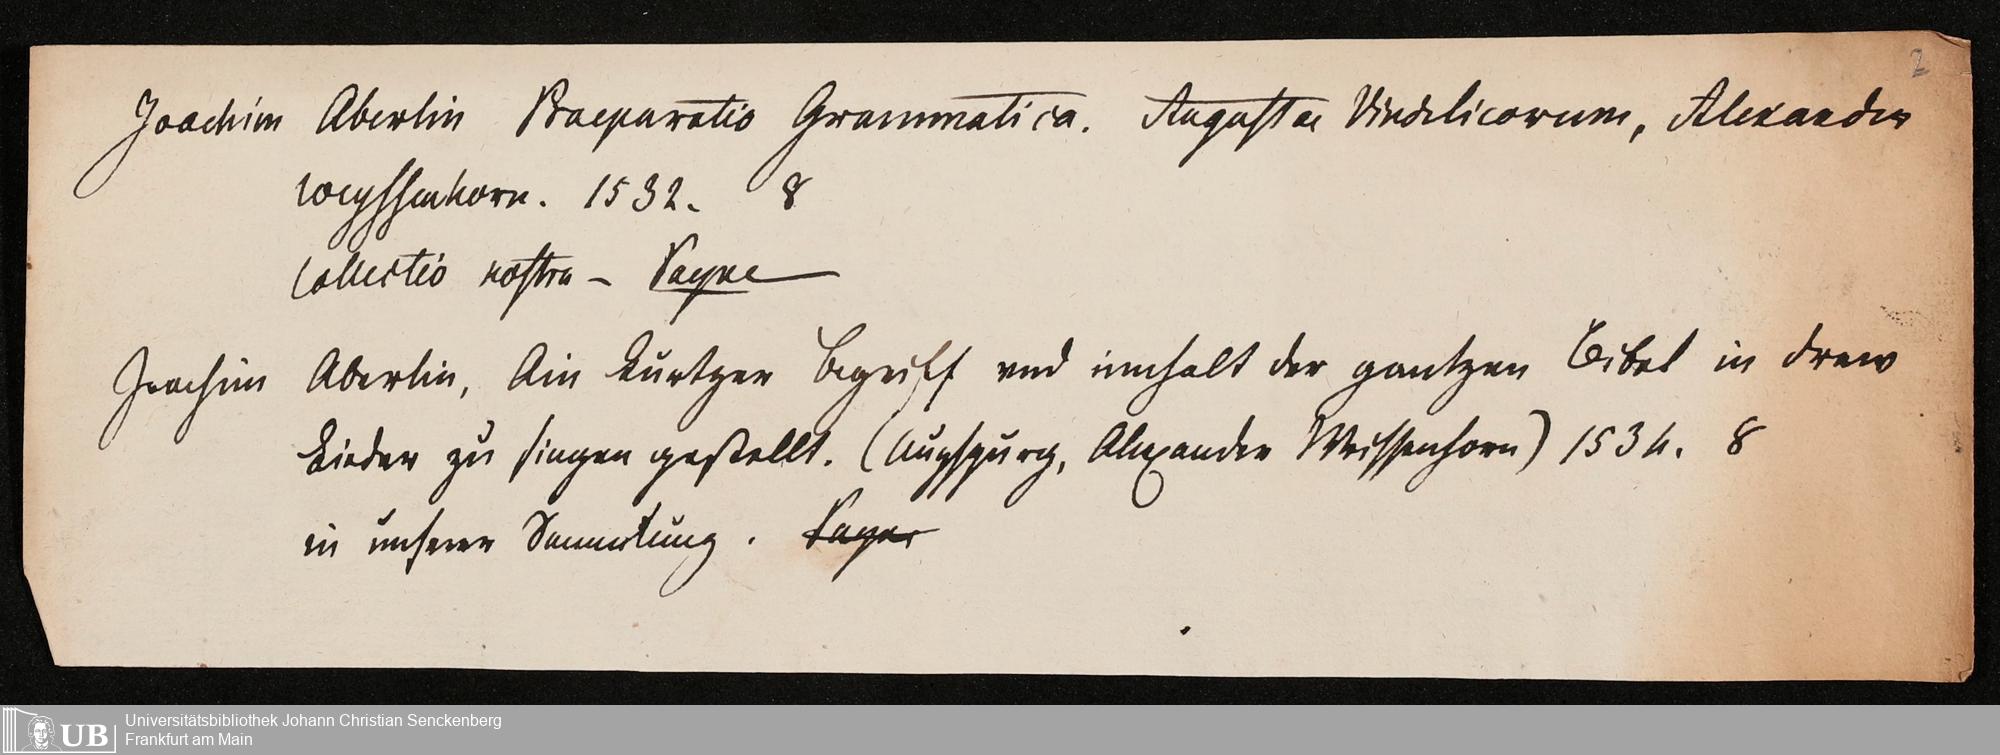 2
Joachim Aberlin Praeparatio Grammatica. Augustae Vindelicorum, Alexander
weyssenhorn. 1532. 8
Collectio nostra –
Joachim Aberlin, Ain kurtzer begriff vnd innhalt der gantzen Bibel in drew
Lieder zu singen gestellt. (Augspurg, Alexander Weissenhorn) 1534. 8
in unserer Sammlung.
Universitätsbibliothek Johann Christian Senckenberg
Frankfurt am Main
UB